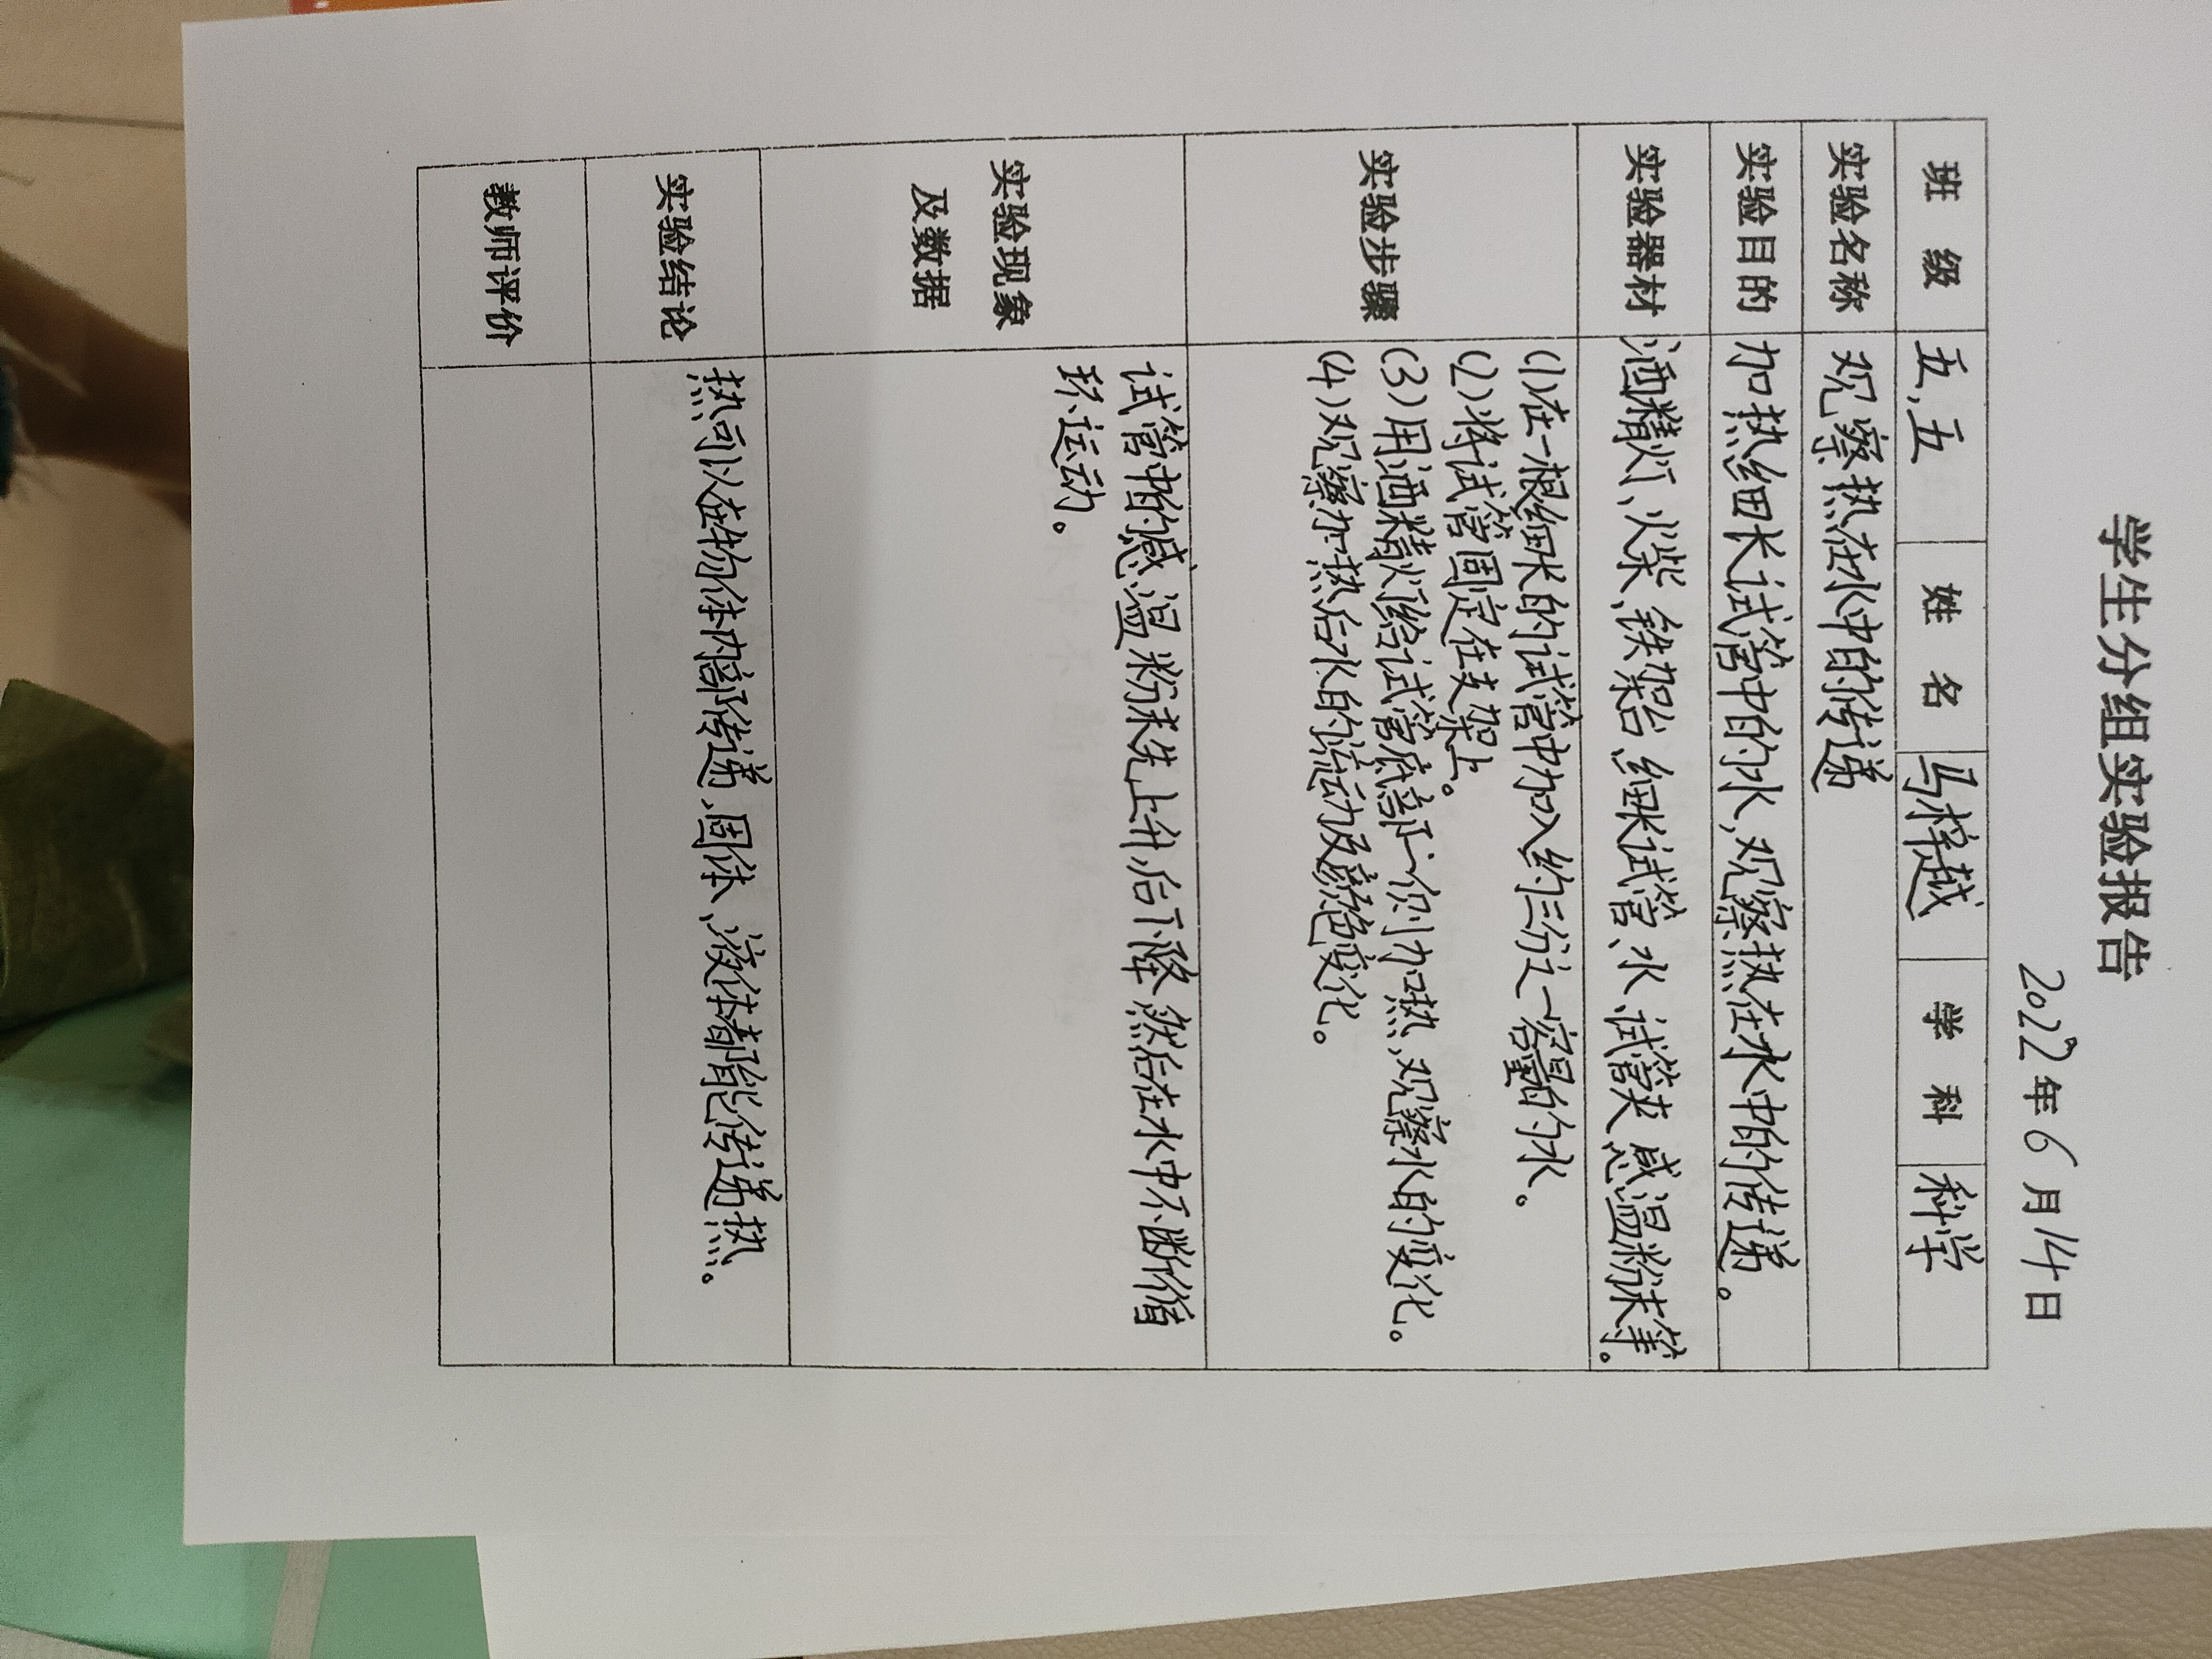 学生分组实验报告
2022年6月14日
班 级 五,五 姓 名 马梓越 学 科 科学
实验名称 观察热在水中的传递
实验目的 加热细长试管中的水,观察热在水中的传递。
实验器材 酒精灯、火柴、铁架台、细长试管、水、试管夹、感温粉末等。
实验步骤
(1)在一根细长的试管中加入约三分之一容量的水。
(2)将试管固定在支架上。
(3)用酒精灯给试管底部一侧加热,观察水的变化。
(4)观察加热后水的流动及颜色变化。
实验现象
及数据
试管中的感温粉末先上升,后下降,然后在水中不断循
环运动。
实验结论 热可以在物体内部传递,固体、液体都能传递热。
教师评价